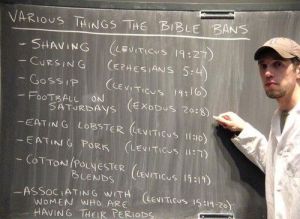 VARIOUS THINGS THE BIBLE BANS
- SHAVING (LEVITICUS 19:27)
- CURSING (EPHESIANS 5:4)
- GOSSIP (LEVITICUS 19:16)
- FOOTBALL ON SATURDAYS (EXODUS 20:8)
- EATING LOBSTER (LEVITICUS 11:10)
- EATING PORK (LEVITICUS 11:7)
- COTTON/POLYESTER BLENDS (LEVITICUS 19:19)
- ASSOCIATING WITH
WOMEN WHO ARE (LEVITICUS 15:19-20)
HAVING THEIR PERIODS